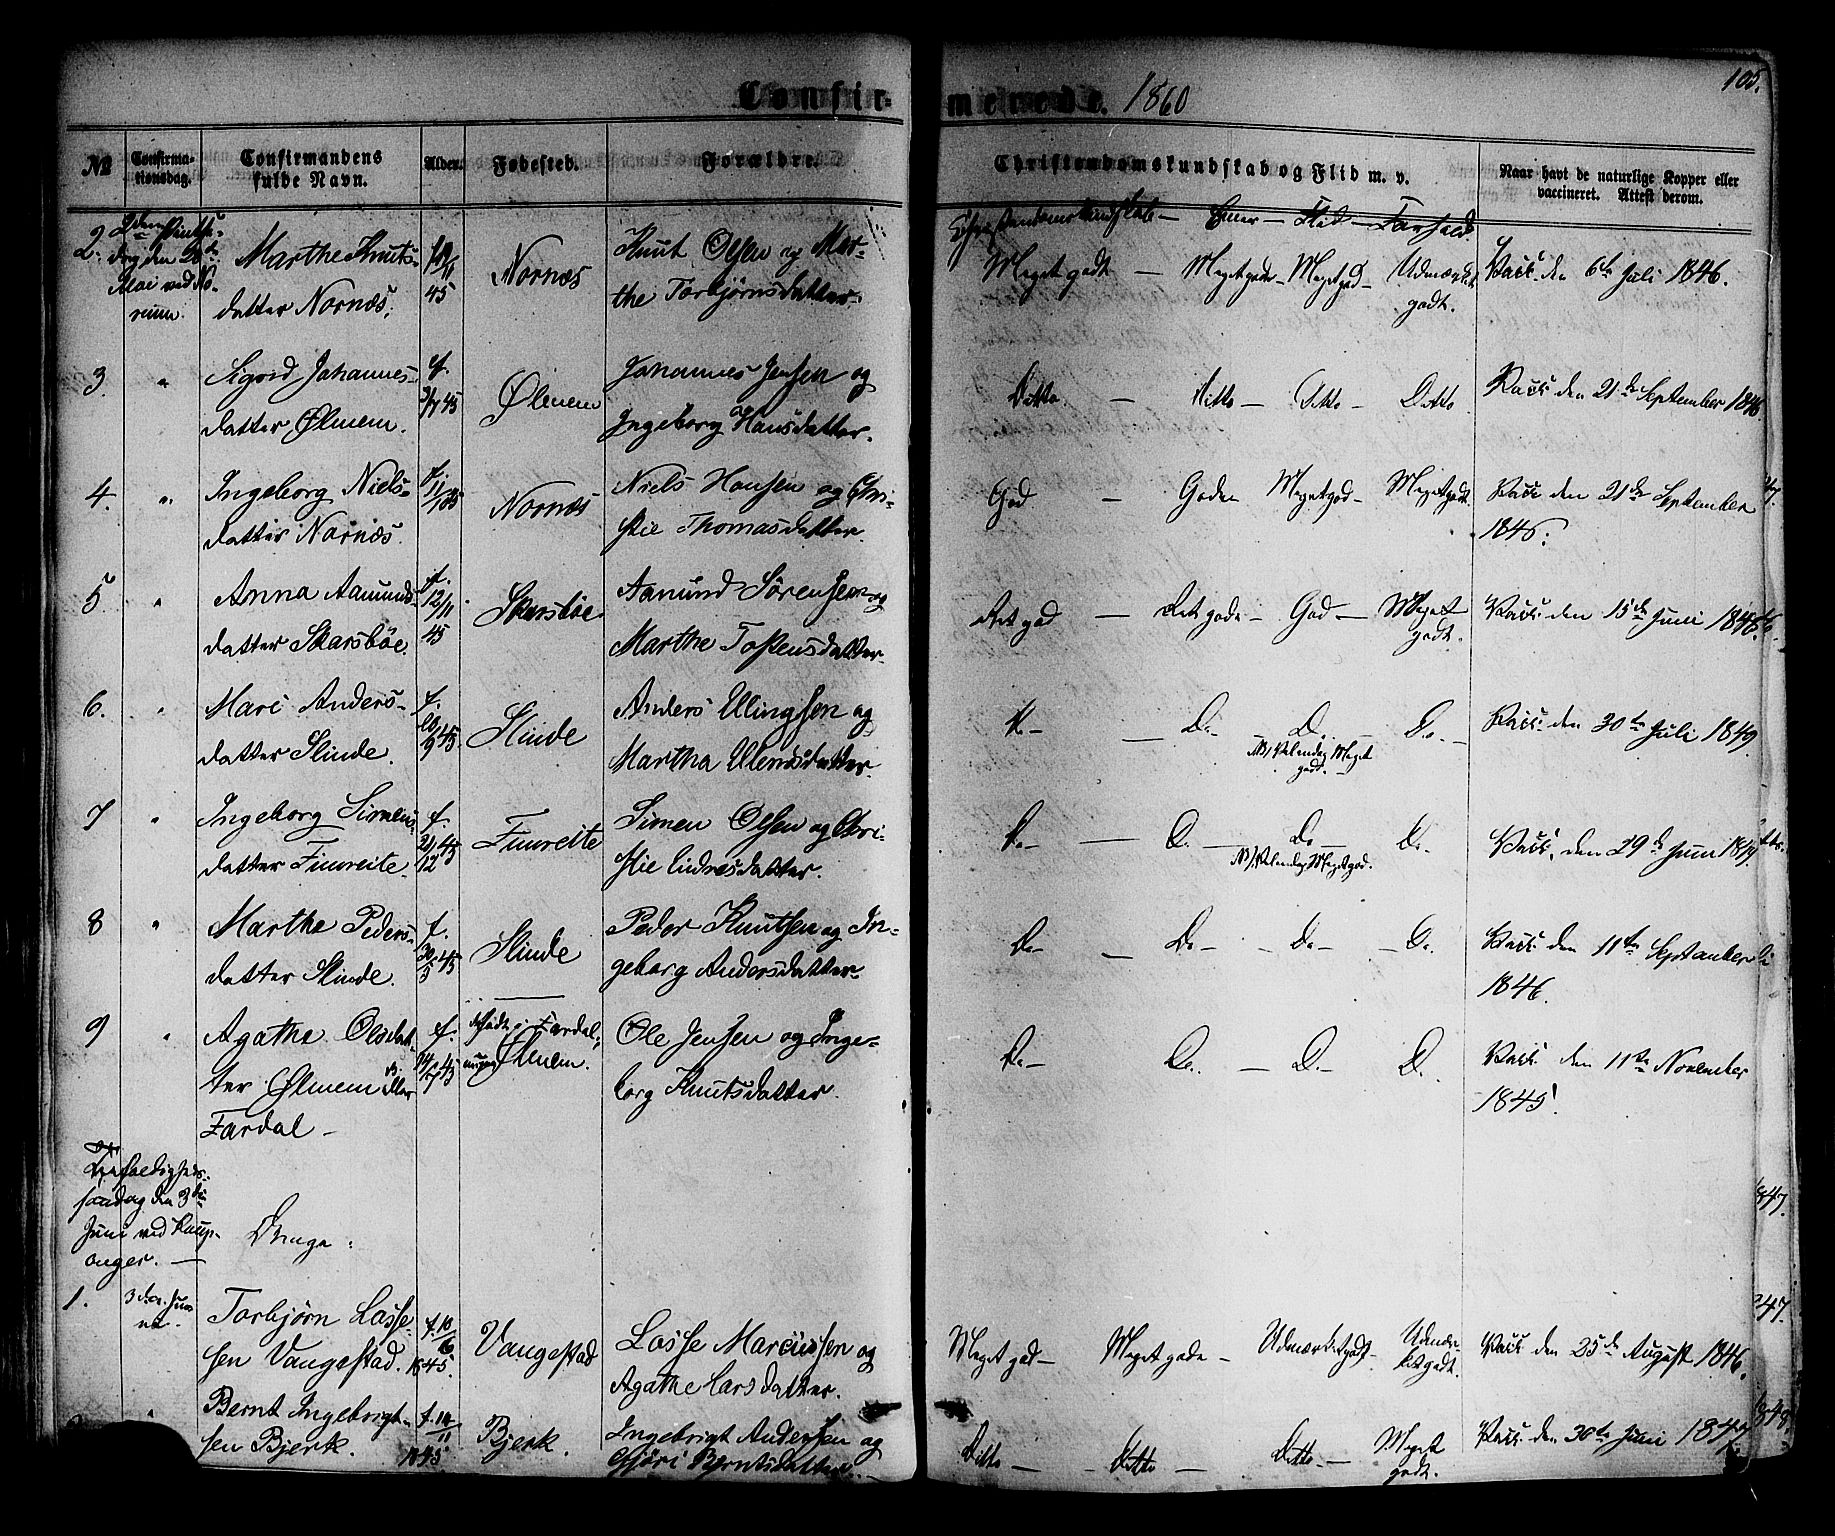 Confirmerede. 1860
105.
№
Confirmationsdag.
Confirmandens fulde Navn.
Alder.
Fødested.
Forældre.
Christendomskundskab og Flid m. v.
Naar havt de naturlige Kopper eller vaccineret. Attest derom.
Christendomskundskab — Evner — Flid — Forhold.
2. 2den Pintse-
dag den 28de
Mai ved No-
rum.
Marthe Knuts-
datter Nornæs.
45
Nornæs
Knut Olsen og Mar-
the Torbjørnsdatter.
Meget godt — Meget gode — Meget god — Udmærket
godt.
Vacc. den 6te Juli 1846.
3. "
Sigrid Johannes-
datter Ølmem.
f.
3/7 45
Ølmem
Johannes Jensen og
Ingeborg Hansdatter.
Ditto — Ditto — Ditto — Ditto
Vacc. den 21de September 1846
4. "
Ingeborg Niels-
datter Nornæs.
f.
Nornæs
Niels Hansen og Chri-
stie Thomasdatter.
God — Gode Meget god — Meget godt
Vacc. den 21de September
1846.
5 "
Anna Aamunds-
datter Skarsbøe.
f.
12/11
45
Skarsbøe
Aamund Sørensen og
Marthe Tostensdatter
Ret god — Ret gode — God — Meget
godt.
Vacc. den 15de Juni 1846.
6. "
Mari Anders-
datter Slinde.
f.
20/9 45.
Slinde
Anders Ellingsen og
Martha Ellendsdatter
D. — D. — D. — D. —
NB/ Udenad Meget
godt. —
Vacc. den 30te Juli 1849
7 "
Ingeborg Simens-
datter Fimreite.
f.
21/12 45
Fimreite
Simen Olsen og Chri-
stie Endresdatter.
D. — D. — D. — D.
NB/ Udenad Meget god.
Vacc. den 29de Juni 1849
8 "
Marthe Peders-
datter Slinde.
f.
30/5 45
Slinde
Peder Knutsen og In-
geborg Andersdatter
D. — D. — D. — D.
Vacc. den 11te September
1846.
9 "
Agathe Olsdat-
ter Ølmem eller
Fardal —
f.
14/7 45
født i Fardal,
Ølmem.
Ole Jensen og Inge-
borg Knutsdatter.
D. — D. — D. — D.
Vacc. den 11te November
1845.
Trefoldigheds-
søndag den 3die
Juni ved Kaup-
anger. —
Drenge:
1. 3die Juni
Torbjørn Lasse-
sen Vangestad.
f. 10/6
1845.
Vangestad
Lasse Marcussen og
Agathe Larsdatter.
Meget god — Meget gode — Udmærket godt — Udmær-
ket godt.
Vacc. den 25de August 1846.
"
Bernt Ingebrigt-
sen Bjerk.
f. 10/11
1845
Bjerk.
Ingebrigt Andersen og
Gjøri Berntsdatter. —
Ditto — Ditto — Ditto — Meget
godt.
Vacc. den 30te Juni 1847